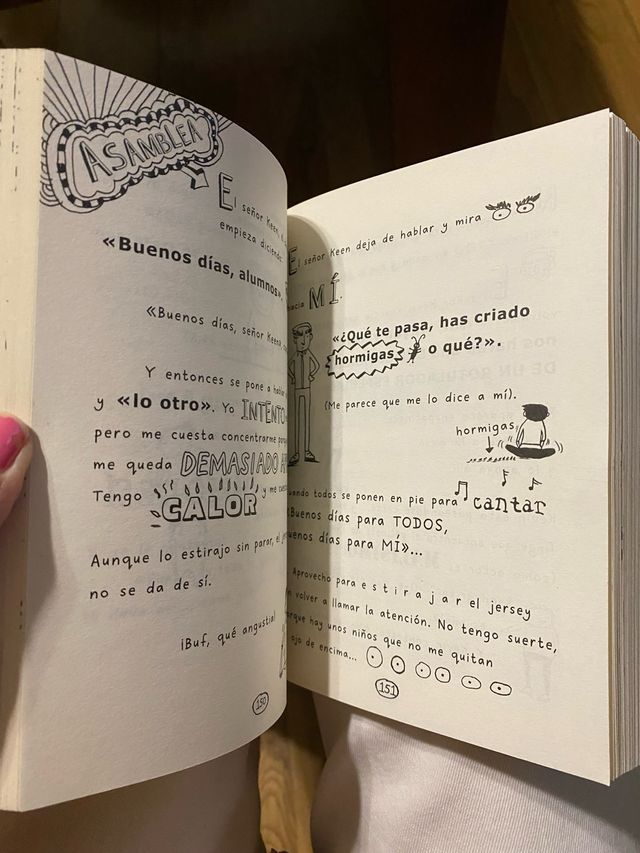 ASAMBLEA
El señor Keen,
empieza diciendo:
«Buenos días, alumnos».
«Buenos días, señor Keen»,
Y entonces se pone a hablar
y «lo otro». Yo INTENTO
pero me cuesta concentrarme porque
me queda DEMASIADO
Tengo CALOR y me cuesta
Aunque lo estirajo sin parar, el
no se da de sí.
¡Buf, qué angustia!
150
El señor Keen deja de hablar y mira
hacia MÍ.
«¿Qué te pasa, has criado
hormigas o qué?».
(Me parece que me lo dice a mí).
hormigas
cuando todos se ponen en pie para cantar
«Buenos días para TODOS,
buenos días para MÍ»...
Aprovecho para e s t i r a j a r el jersey
volver a llamar la atención. No tengo suerte,
porque hay unos niños que no me quitan
ojo de encima...
151